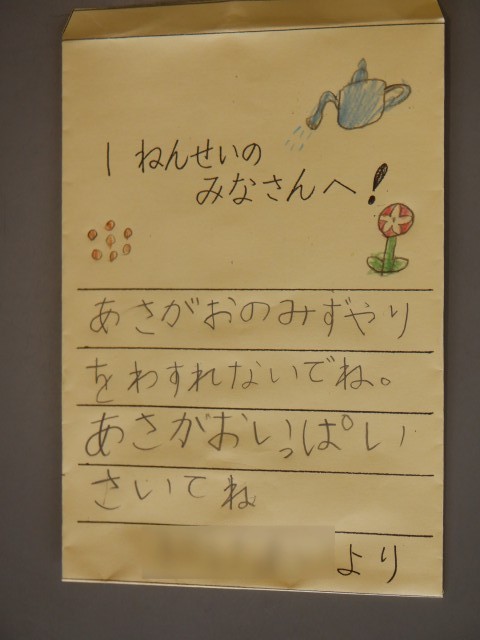 1 ねんせいの
みなさんへ!
あさがおのみずやり
をわすれないでね。
あさがおいっぱい
さいてね
より